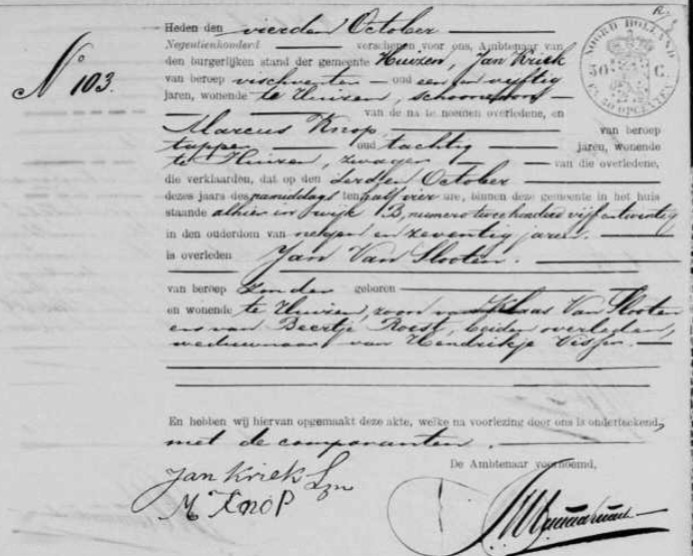 Heden den vierden October
Negentienhonderd verschenen voor ons, Ambtenaar van
den burgerlijken stand der gemeente Huizen, Jan Kriek
van beroep vischventer oud een en vijftig
jaren, wonende te Huizen, schoonzoon
van de na te noemen overledene, en
Marcus Knop, van beroep
tapper oud tachtig jaren, wonende
te Huizen, zwager van die overledene,
die verklaarden, dat op den derden October
dezes jaars des namiddags ten half vier ure, binnen deze gemeente in het huis
staande alhier in wijk B, numero tweehonderd vijf en twintig
in den ouderdom van negen en zeventig jaren.
is overleden Jan Van Slooten.
van beroep zonder geboren
en wonende te Huizen, zoon van Klaas Van Slooten
en van Beertje Roest, beiden overleden,
weduwnaar van Hendrikje Visser.
En hebben wij hiervan opgemaakt deze akte, welke na voorlezing door ons is onderteekend,
met de comparanten.
De Ambtenaar voornoemd,
Jan Kriek Lzn
M Knop
No 103.
NOORD HOLLAND
50 C.
EN 38 OPCENTEN